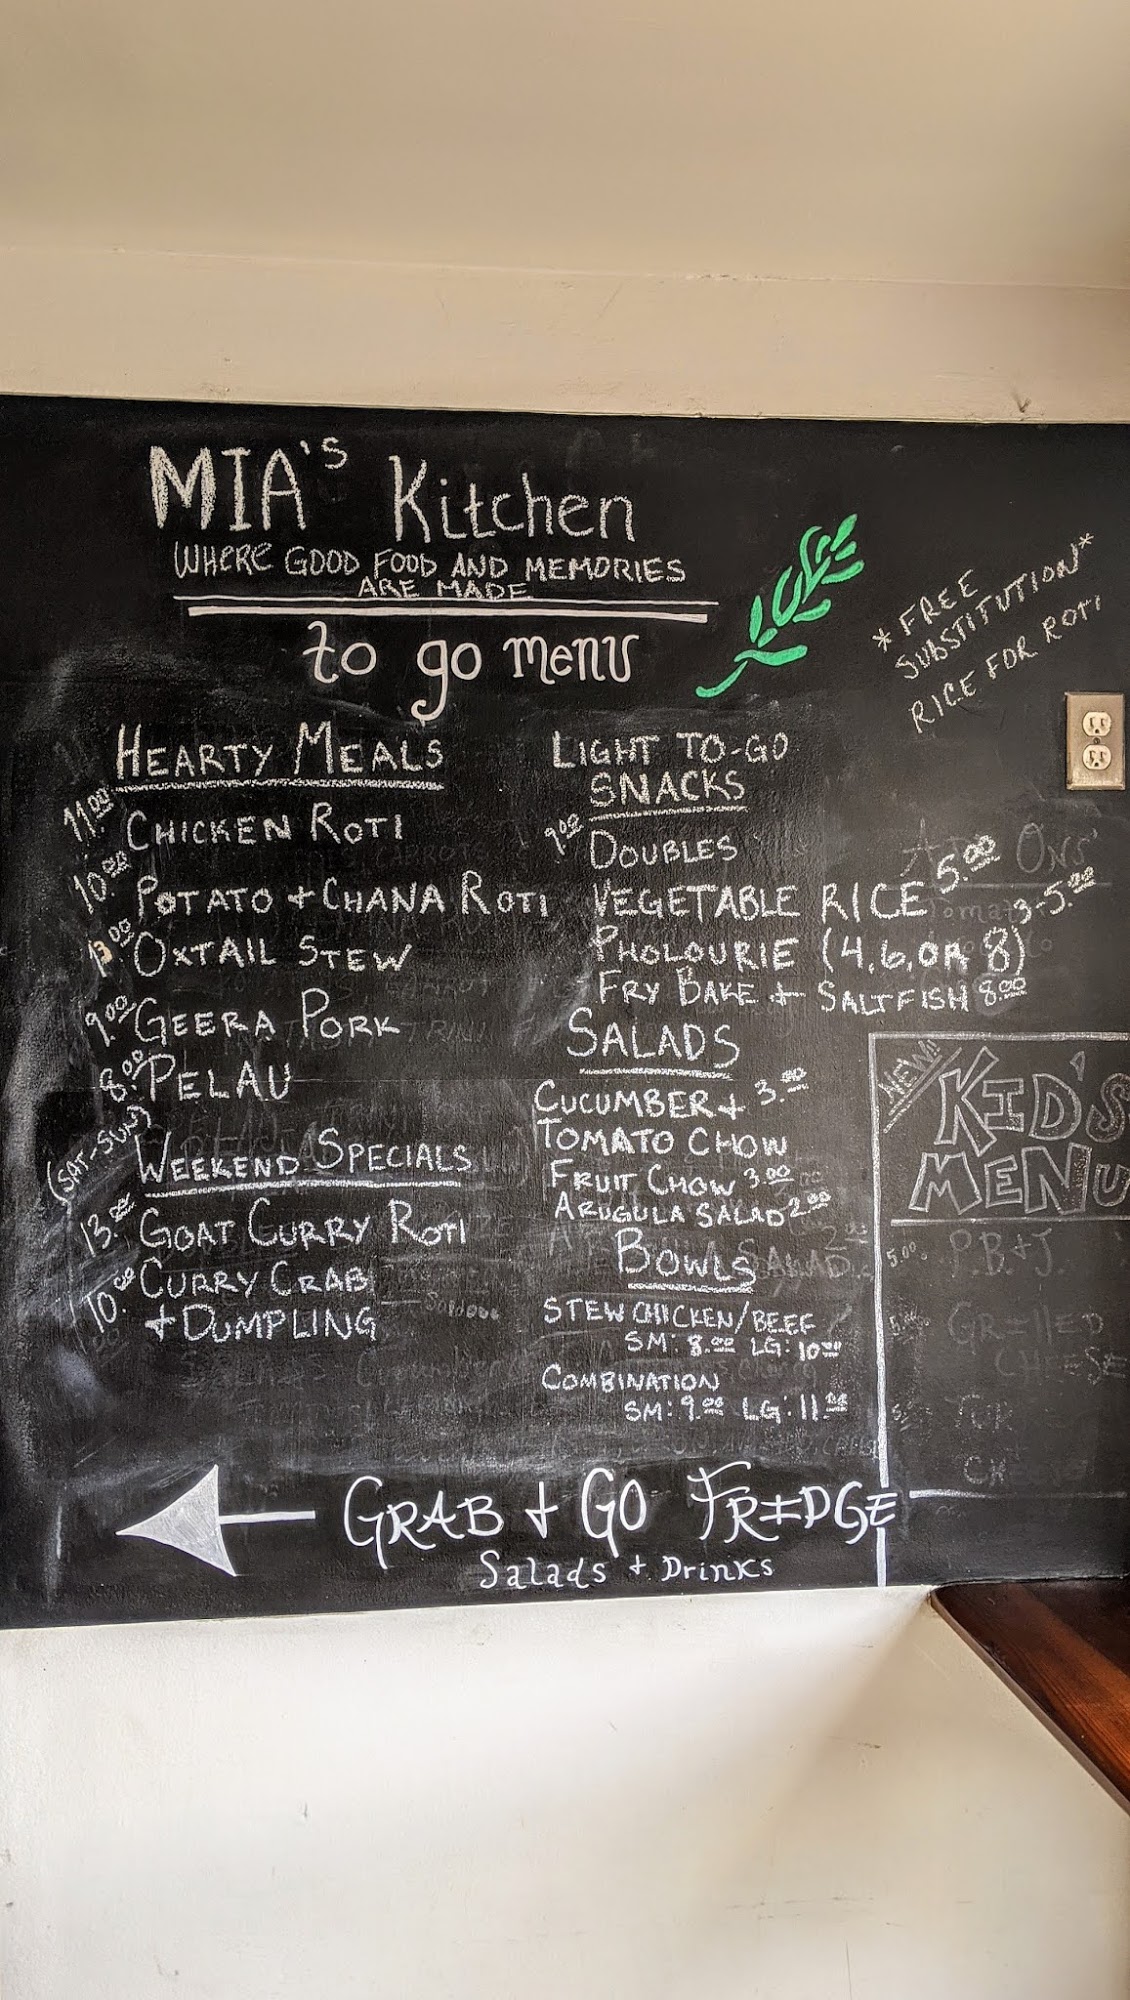 MIA's Kitchen
WHERE GOOD FOOD AND MEMORIES
ARE MADE
to go menu
*FREE
SUBSTITUTION*
RICE FOR ROTI
HEARTY MEALS
11.00 CHICKEN ROTI
10.00 POTATO + CHANA ROTI
13.00 OXTAIL STEW
9.00 GEERA PORK
8.00 PELAU
(SAT-SUN) WEEKEND SPECIALS
13.00 GOAT CURRY ROTI
10.00 CURRY CRAB
+ DUMPLING
LIGHT TO-GO
SNACKS
DOUBLES
VEGETABLE RICE 5.00
PHOLOURIE (4, 6, OR 8) 3-5.00
FRY BAKE + SALTFISH 8.00
SALADS
CUCUMBER + 3.00
TOMATO CHOW
FRUIT CHOW 3.00
ARUGULA SALAD 2.00
BOWLS
STEW CHICKEN/BEEF
SM: 8.00 LG: 10.00
COMBINATION
SM: 9.00 LG: 11.00
ADD ONS
NEW!! KID'S
MENU
5.00 P.B.+J.
GRILLED
CHEESE
GRAB + GO FRIDGE
Salads + Drinks